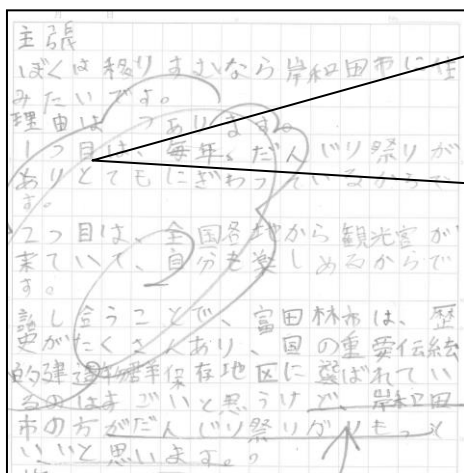 主張
ぼくは移りすむなら岸和田市に住
みたいです。
理由は つあります。
1つ目は、毎年、だんじり祭りが
ありとてもにぎわっているからで
す。
2つ目は、全国各地から観光官が
来ていて、自分も楽しめるからで
す。
話し合うことで、富田林市は、歴
史がたくさんあり、国の重要伝統
的建造物群保存地区に選ばれてい
るのはすごいと思うけど、岸和田
市の方がだんじり祭りがありもっと
いいと思います。